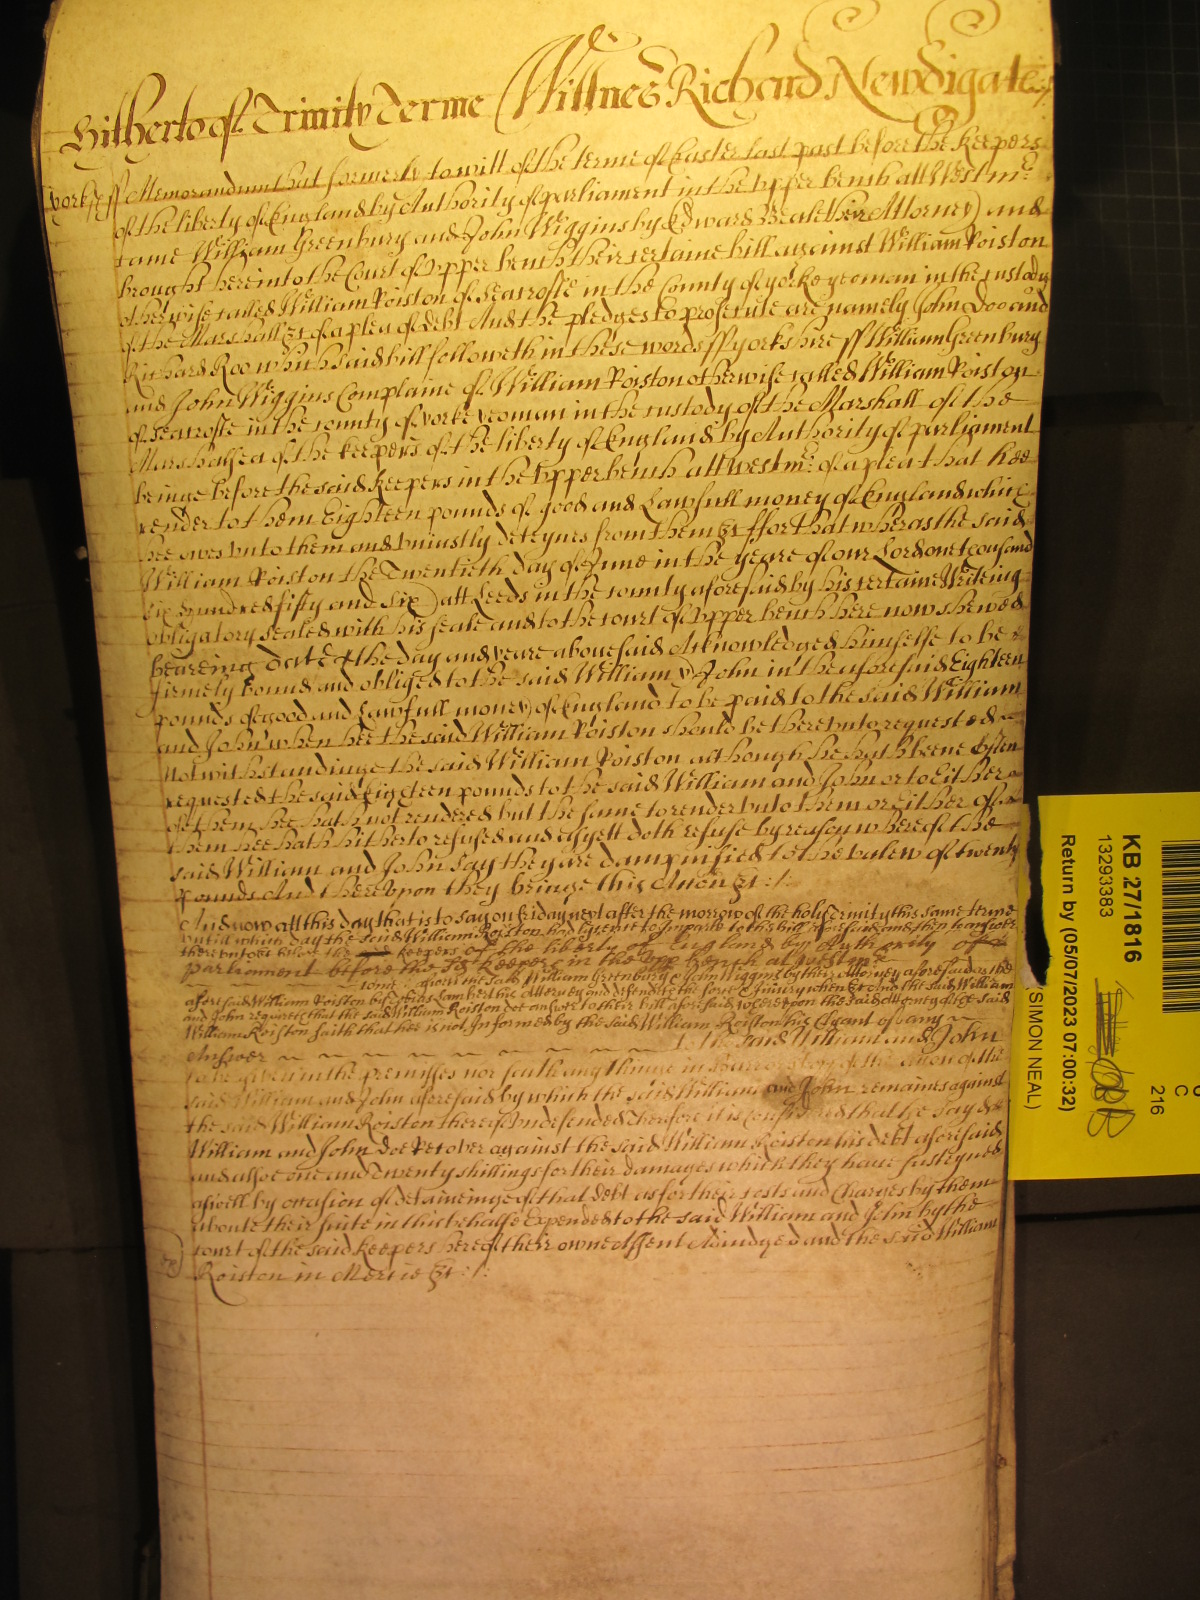 Hitherto of Trinity Terme Wittnes Richard Newdigate
yorksh ss Memorandum that formerly to witt of the terme of Easter last past before the keepers
of the liberty of England by Authority of parliament in the upper bench att Westmr
came William Greenbury and John Wiggins by Edward Beale their Attorney and
brought here into the Court of upper bench their certaine bill against William Roiston
otherwise called William Roiston of Seacrofte in the County of yorke yeoman in the custody
of the Marshall &c of a plea of debt And the pledges to prosecute are namely John Doo and
Richard Roo which said bill followeth in these words ss yorkshire ss William Greenbury
and John Wiggins Complaine of William Roiston otherwise called William Roiston
of Seacrofte in the county of yorke yeoman in the custody of the Marshall of the
Marshalsea of the keepers of the liberty of England by Authority of parliament
beinge before the said keepers in the upper bench att westmr of a plea that hee
render to them Eighteen pounds of good and Lawfull money of England which
hee owes unto them and uniustly deteynes from them &c ffor that wheras the said
William Roiston the Twentieth day of June in the yeare of our Lord one thousand
six hundred fifty and six att Leeds in the county aforesaid by his certaine Writeing
obligatory sealed with his seale and to the court of upper bench here now shewed
beareing date the day and yeare abovesaid Acknowledged himselfe to be
firmely bound and obliged to the said William & John in the aforesaid Eighteen
pounds of good and Lawfull money of England to be paid to the said William
and John when hee the said William Roiston should be thereunto requested
Notwithstandinge the said William Roiston although he hath beene Often
requested the said Eighteen pounds to the said William and John or to Either
of them hee hath not rendered but the same to render unto them or Either of
them hee hath hitherto refused and as yett doth refuse by reason whereof the
said William and John say they are dampnified to the valew of twenty
pounds And thereupon they bringe this Action &c
And now att this day that is to say on Friday next after the morrow of the holy Trinity this same terme
untill which day the said William Roiston had lycence to Imparle to this bill aforesaid and then to answer
thereunto before the keepers of the liberty of England by Authority of
parliament before the sd keepers in the upp bench at westmr
come aswell the said William Greenbury & John Wiggins by their Attorney aforesaid as the
aforesaid William Roiston by his Attorney and defends the force & Iniury when &c And the said William
and John requires that the said William Roiston doe answer to their bill aforesaid whereupon the said attorney of the said
William Roiston saith that hee is not Informed by the said William Roiston his Clyant of any
Answer to the said William and John
to be given in the premisses nor saith any thinge in of the Action of the
said William and John aforesaid by which the said William and John remaines against
the said William Roiston thereof undefended Therefore it is Considered that the sayd
William and John doe Recover against the said William Roiston his debt aforesaid
and alsoe one and Twenty shillings for their damages which they have susteyned
aswell by occasion of detaineinge of that debt as for their costs and Charges by them
aboute their suite in this behalfe Expended to the said William and John by the
court of the said keepers here of their owne Assent Adiudged and the said William
Roiston in Mercie &c
KB 27/1816
13293383
Return by (05/07/2023 07:00:32)
SIMON NEAL)
C
216